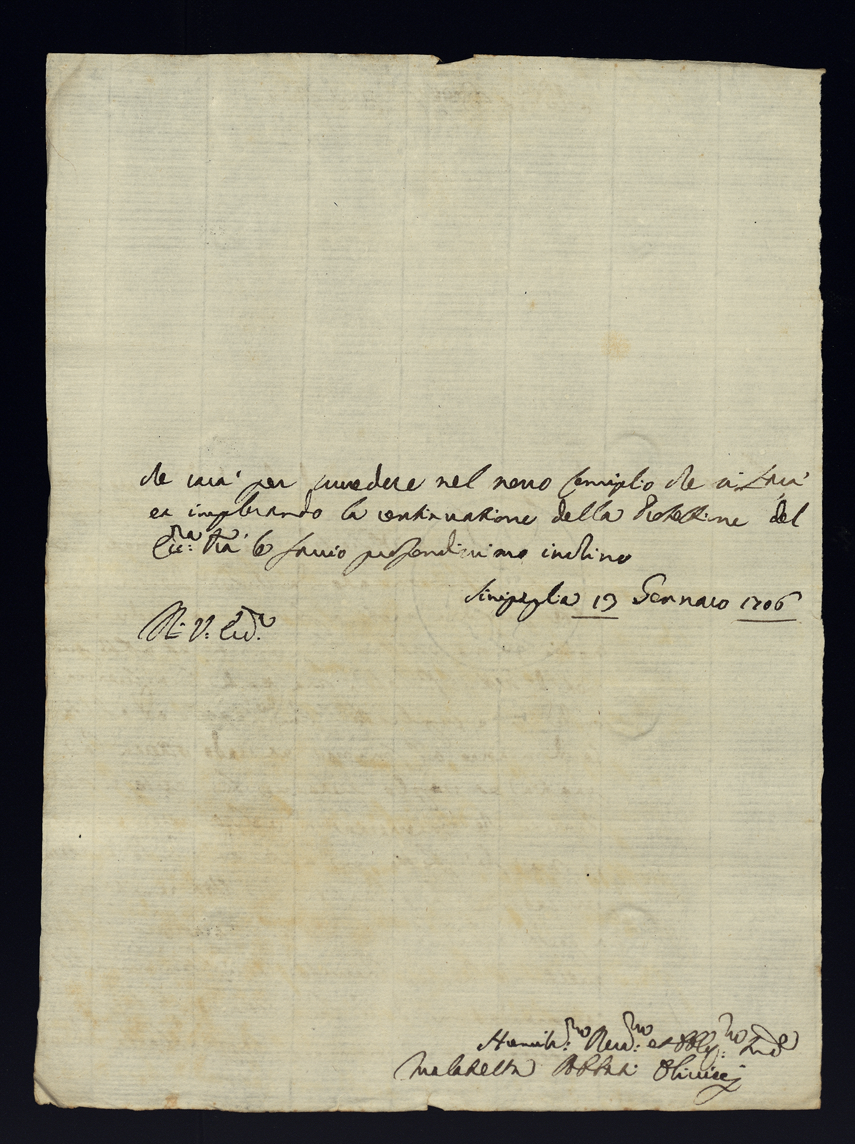 che sarà per succedere nel novo Conseglio che vi sarà
et implorando la continuatione della Protettione del
Ecc:ma V'ra le faccio profondissimo inchino
Sinigaglia 19 Gennaro 1706
Di V: Ecc.
Humil:mo Dev:mo et Obblig:mo
Malatesta Olivieri